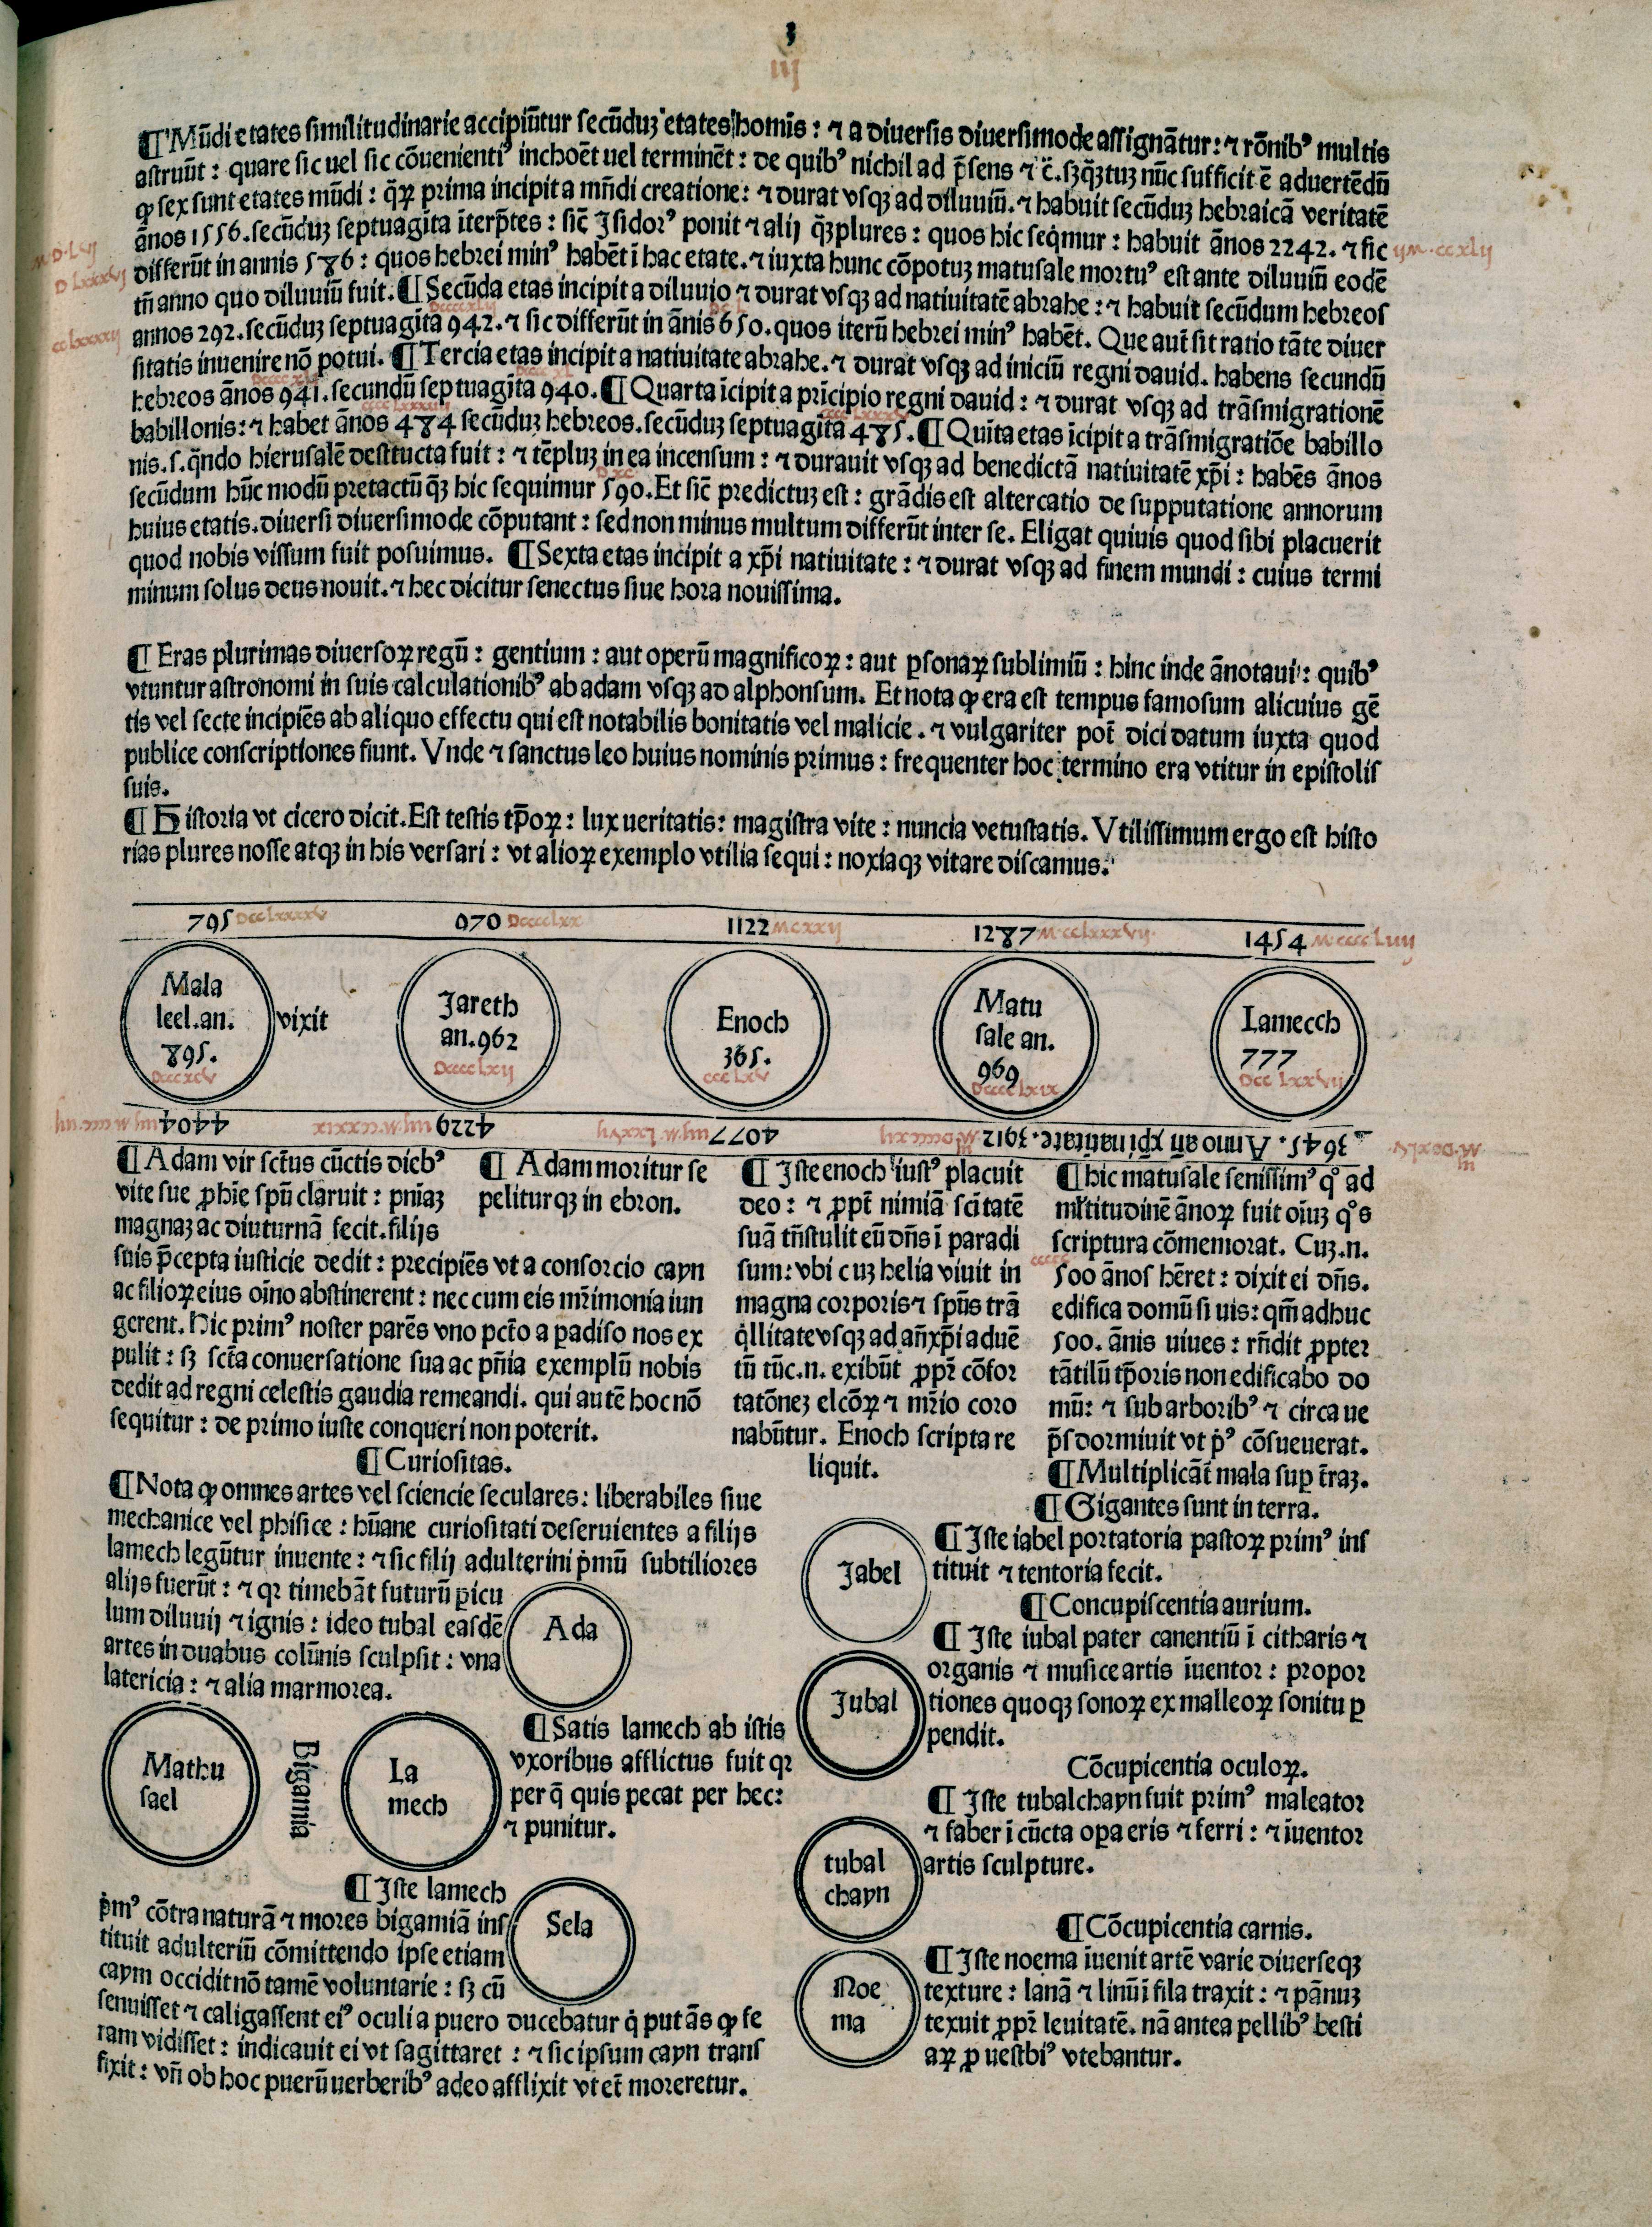 3
iij
¶ Mūdi etates similitudinarie accipiūtur secūduꝫ etates homīs : ⁊ a diuersis diuersimode assignātur : ⁊ rōnibꝰ multis
astruūt : quare sic uel sic cōuenientiꝰ inchoēt uel terminēt : de quibꝰ nichil ad p̄sens ⁊ c̄. sꝫ q̄ꝫtuꝫ nūc sufficit ē aduertēdū
ꝙ sex sunt etates mūdi : q̄ꝝ prima incipit a mūdi creatione : ⁊ durat vsqꝫ ad diluuiū. ⁊ habuit secūduꝫ hebraicā veritatē
ānos 1556. secūduꝫ septuagīta īterp̄tes : sic̄ Isidorꝰ ponit ⁊ alij q̄ꝫplures : quos hic seq̄mur : habuit ānos 2242. ⁊ sic
differūt in annis 586 : quos hebrei minꝰ habēt ī hac etate. ⁊ iuxta hunc cōpotuꝫ matusale mortuꝰ est ante diluuiū eodē
tn̄ anno quo diluuiū fuit. ¶ Secūda etas incipit a diluuio ⁊ durat vsqꝫ ad natiuitatē abrahe : ⁊ habuit secūdum hebreos
annos 292. secūduꝫ septuagīta 942. ⁊ sic differūt in ānis 650. quos iterū hebrei minꝰ habēt. Que aut̄ sit ratio tāte diuer
sitatis inuenire nō potui. ¶ Tercia etas incipit a natiuitate abrahe. ⁊ durat vsqꝫ ad iniciū regni dauid. habens secundū
hebreos ānos 941. secundū septuagīta 940. ¶ Quarta īcipit a prīcipio regni dauid : ⁊ durat vsqꝫ ad trāsmigrationē
babillonis : ⁊ habet ānos 484 secūduꝫ hebreos. secūduꝫ septuagīta 485. ¶ Quīta etas īcipit a trāsmigratiōe babillo
nis. s. q̄ndo hierusalē destructa fuit : ⁊ tēpluꝫ in ea incensum : ⁊ durauit vsqꝫ ad benedictā natiuitatē xp̄i : habēs ānos
secūdum hūc modū pretactū q̄ꝫ hic sequimur 590. Et sic̄ predictuꝫ est : grādis est altercatio de supputatione annorum
huius etatis. diuersi diuersimode cōputant : sed non minus multum differūt inter se. Eligat quiuis quod sibi placuerit
quod nobis vissum fuit posuimus. ¶ Sexta etas incipit a xp̄i natiuitate : ⁊ durat vsqꝫ ad finem mundi : cuius termi
minum solus deus nouit. ⁊ hec dicitur senectus siue hora nouissima.
¶ Eras plurimas diuersoꝝ regū : gentium : aut operū magnificoꝝ : aut ꝑsonaꝝ sublimiū : hinc inde ānotaui : quibꝰ
vtuntur astronomi in suis calculationibꝰ ab adam vsqꝫ ad alphonsum. Et nota ꝙ era est tempus famosum alicuius gē
tis vel secte incipiēs ab aliquo effectu qui est notabilis bonitatis vel malicie. ⁊ vulgariter pot̄ dici datum iuxta quod
publice conscriptiones fiunt. Vnde ⁊ sanctus leo huius nominis primus : frequenter hoc termino era vtitur in epistolis
suis.
¶ Historia vt cicero dicit. Est testis tp̄oꝝ : lux ueritatis : magistra vite : nuncia vetustatis. Vtilissimum ergo est histo
rias plures nosse atqꝫ in his versari : vt alioꝝ exemplo vtilia sequi : noxiaqꝫ vitare discamus.
795 970 1122 1287 1454
Mala
leel. an.
895.
vixit
Jareth
an. 962
Enoch
365.
Matu
sale an.
969
Lamecch
777
4404 4229 4077 3912 . Anno an̄ xp̄i natiuitatē . 3645.
¶ Adam vir sct̄us cūctis diebꝰ
vite sue ꝓphīe spū claruit : pnīaꝫ
magnaꝫ ac diuturnā fecit. filijs
suis p̄cepta iusticie dedit : precipiēs vt a consorcio cayn
ac filioꝝ eius oīno abstinerent : nec cum eis mr̄imonia iun
gerent. Hic primꝰ noster parēs vno pctō a padiso nos ex
pulit : sꝫ sctā conuersatione sua ac pn̄ia exemplū nobis
dedit ad regni celestis gaudia remeandi. qui autē hoc nō
sequitur : de primo iuste conqueri non poterit.
¶ Adam moritur se
peliturqꝫ in ebron.
¶ Iste enoch iustꝰ placuit
deo : ⁊ ꝓpt̄ nimiā scītatē
suā tn̄stulit eū dn̄s ī paradi
sum : vbi cuꝫ helia viuit in
magna corporis ⁊ spūs trā
q̄llitate vsqꝫ ad an̄xp̄i aduē
tū tūc. n. exibūt ꝓpr̄ cōfor
tatōneꝫ elcōꝝ ⁊ mr̄io coro
nabūtur. Enoch scripta re
liquit.
¶ hic matusale senissimꝰ qͦ ad
ml̄titudinē ānoꝝ fuit oīuꝫ qͦs
scriptura cōmemorat. Cuꝫ. n.
500 ānos hēret : dixit ei dn̄s.
edifica domū si uis : qm̄ adhuc
500. ānis uiues : rn̄dit ꝓpter
tātilū tp̄oris non edificabo do
mū : ⁊ sub arboribꝰ ⁊ circa ue
p̄s dormiuit vt p̄ꝰ cōsueuerat.
¶ Multiplicāt̄ mala suꝑ t̄raꝫ.
¶ Gigantes sunt in terra.
¶ Curiositas.
¶ Nota ꝙ omnes artes vel sciencie seculares : liberabiles siue
mechanice vel phisice : hūane curiositati deseruientes a filijs
lamech legūtur inuente : ⁊ sic filij adulterini p̄mū subtiliores
alijs fuerūt : ⁊ qꝛ timebāt futurū ꝑicu
lum diluuij ⁊ ignis : ideo tubal easdē
artes in duabus colūnis sculpsit : vna
latericia : ⁊ alia marmorea.
Ada
Mathu
sael
Bigamia
La
mech
¶ Satis lamech ab istis
vxoribus afflictus fuit qꝛ
per q̄ quis pecat per hec :
⁊ punitur.
¶ Iste lamech
p̄mꝰ cōtra naturā ⁊ mores bigamiā ins
tituit adulteriū cōmittendo ipse etiam
caym occidit nō tamē voluntarie : sꝫ cū
senuisset ⁊ caligassent eiꝰ oculi a puero ducebatur q̇ putās ꝙ fe
ram vidisset : indicauit ei vt sagittaret : ⁊ sic ipsum cayn trans
fixit : vn̄ ob hoc puerū uerberibꝰ adeo afflixit vt et̄ moreretur.
Sela
Jabel
¶ Iste iabel portatoria pastoꝝ primꝰ ins
tituit ⁊ tentoria fecit.
¶ Concupiscentia aurium.
Jubal
¶ Iste iubal pater canentiū ī citharis ⁊
organis ⁊ musice artis īuentor : propor
tiones quoqꝫ sonoꝝ ex malleoꝝ sonitu ꝑ
pendit.
Cōcupicentia oculoꝝ.
tubal
chayn
¶ Iste tubalchayn fuit primꝰ maleator
⁊ faber ī cūcta oꝑa eris ⁊ ferri : ⁊ īuentor
artis sculpture.
¶ Cōcupicentia carnis.
Noe
ma
¶ Iste noema īuenit artē varie diuerseqꝫ
texture : lanā ⁊ linū ī fila traxit : ⁊ pānuꝫ
texuit ꝓpr̄ leuitatē. nā antea pellibꝰ besti
aꝝ ꝓ uestbiꝰ vtebantur.